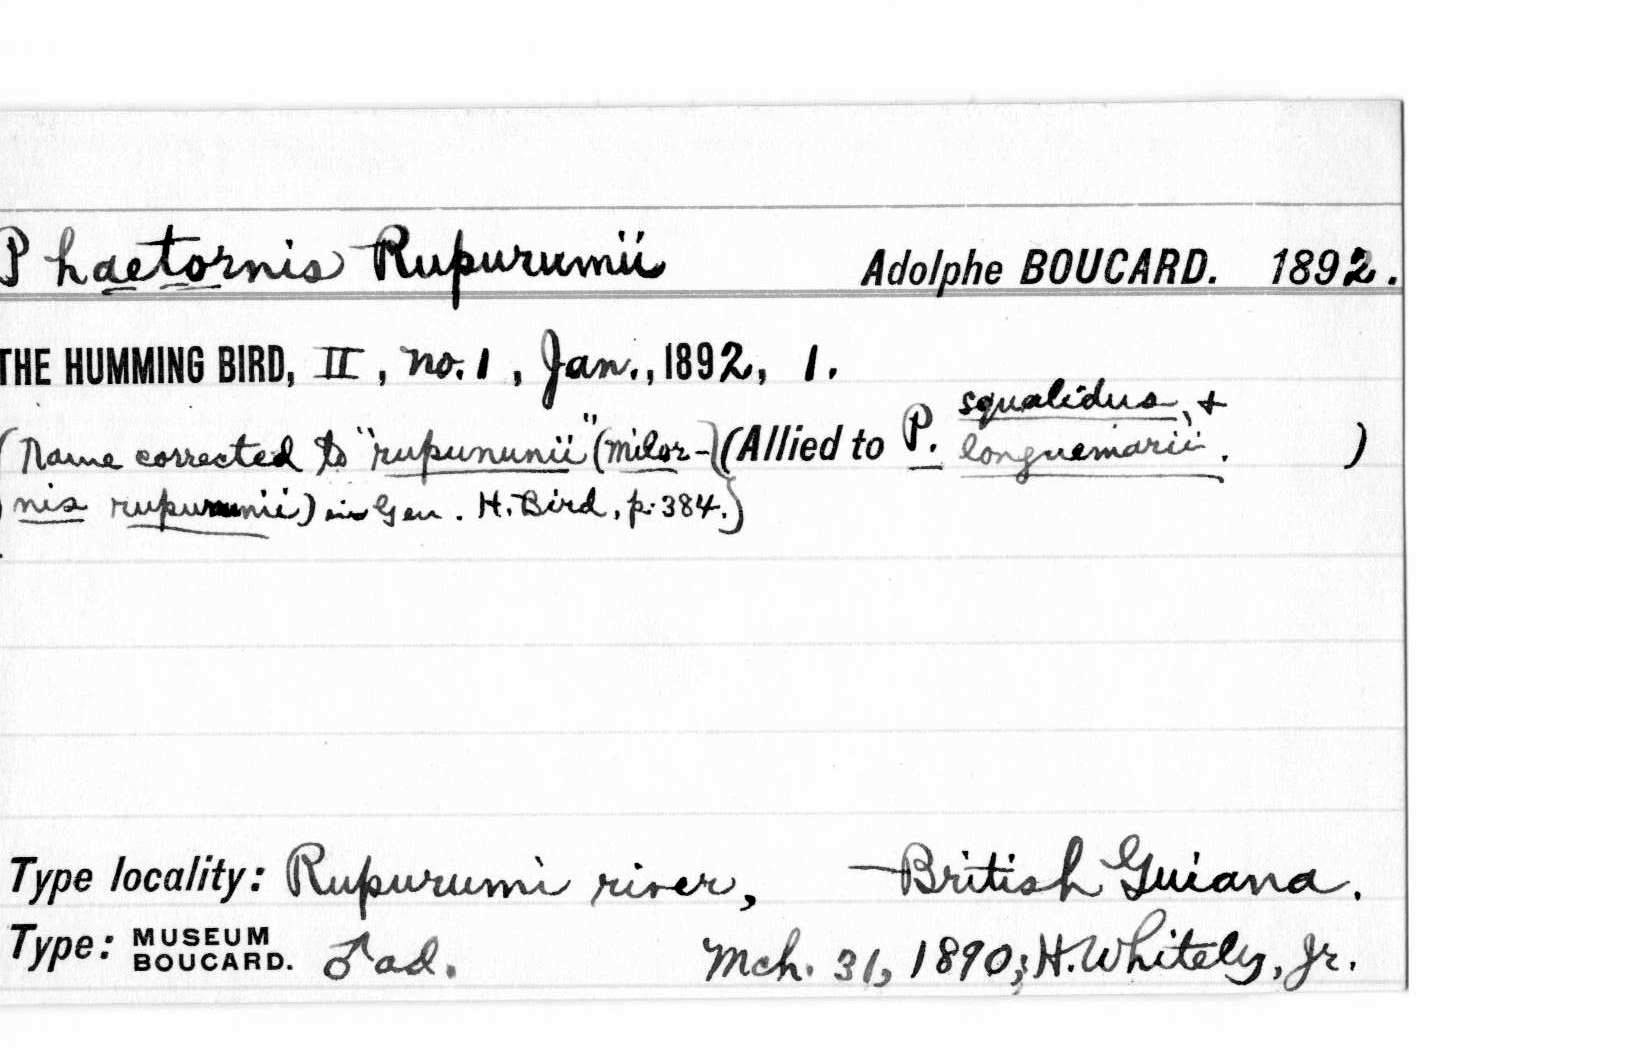 Phaetornis Rupurumii Adolphe BOUCARD. 1892.
THE HUMMING BIRD, II, no. 1, Jan., 1892, 1.
(Name corrected to "rupununii" (Milor-) (Allied to P. squalidus, & longuemarii. )
nis rupununii) in Gen. H. Bird, p. 384.)
Type locality: Rupurumi river, British Guiana.
Type: MUSEUM BOUCARD. ♂ ad. Mch. 31, 1890; H. Whitely, Jr.